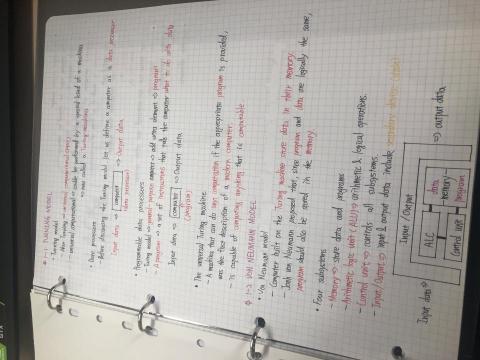 § 1-1 TURING MODEL
• Turing model
- Alan Turing ⇒
- universal computational
• Data processor
- Before discussing the Turing model let us define a computer as a data processor
Input data ⇒ computer ⇒ Output data
(data processor)
• Programmable data processors
- Turing model ⇒ general-purpose ⇒ add extra element ⇒ program
- A program ⇒ a set of instructions that tell the computer what to do with data
Input data ⇒ computer ⇒ Output data
(program)
• The universal Turing machine
- A machine that can do any computation if the appropriate program is provided,
was the first description of a modern computer.
- is capable of computing anything that is computable
§ 1-2 VON NEUMANN MODEL
• Von Neumann model
- Computer built on the Turing machine store data in their memory.
- John von Neumann proposed that, since program and data are logically the same,
program should also be stored in the memory.
• Four subsystems
- Memory ⇒ store data and programs
- Arithmetic logic unit (ALU) ⇒ arithmetic & logical operations.
- Control unit ⇒ controls all subsystems.
- Input/Output ⇒ input & output data include
Input / Output
Input data ⇒
ALC
data
memory
program
Control unit
⇒ output data